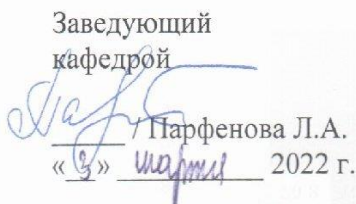 Заведующий
кафедрой
/ Парфенова Л.А.
«3» марта 2022 г.